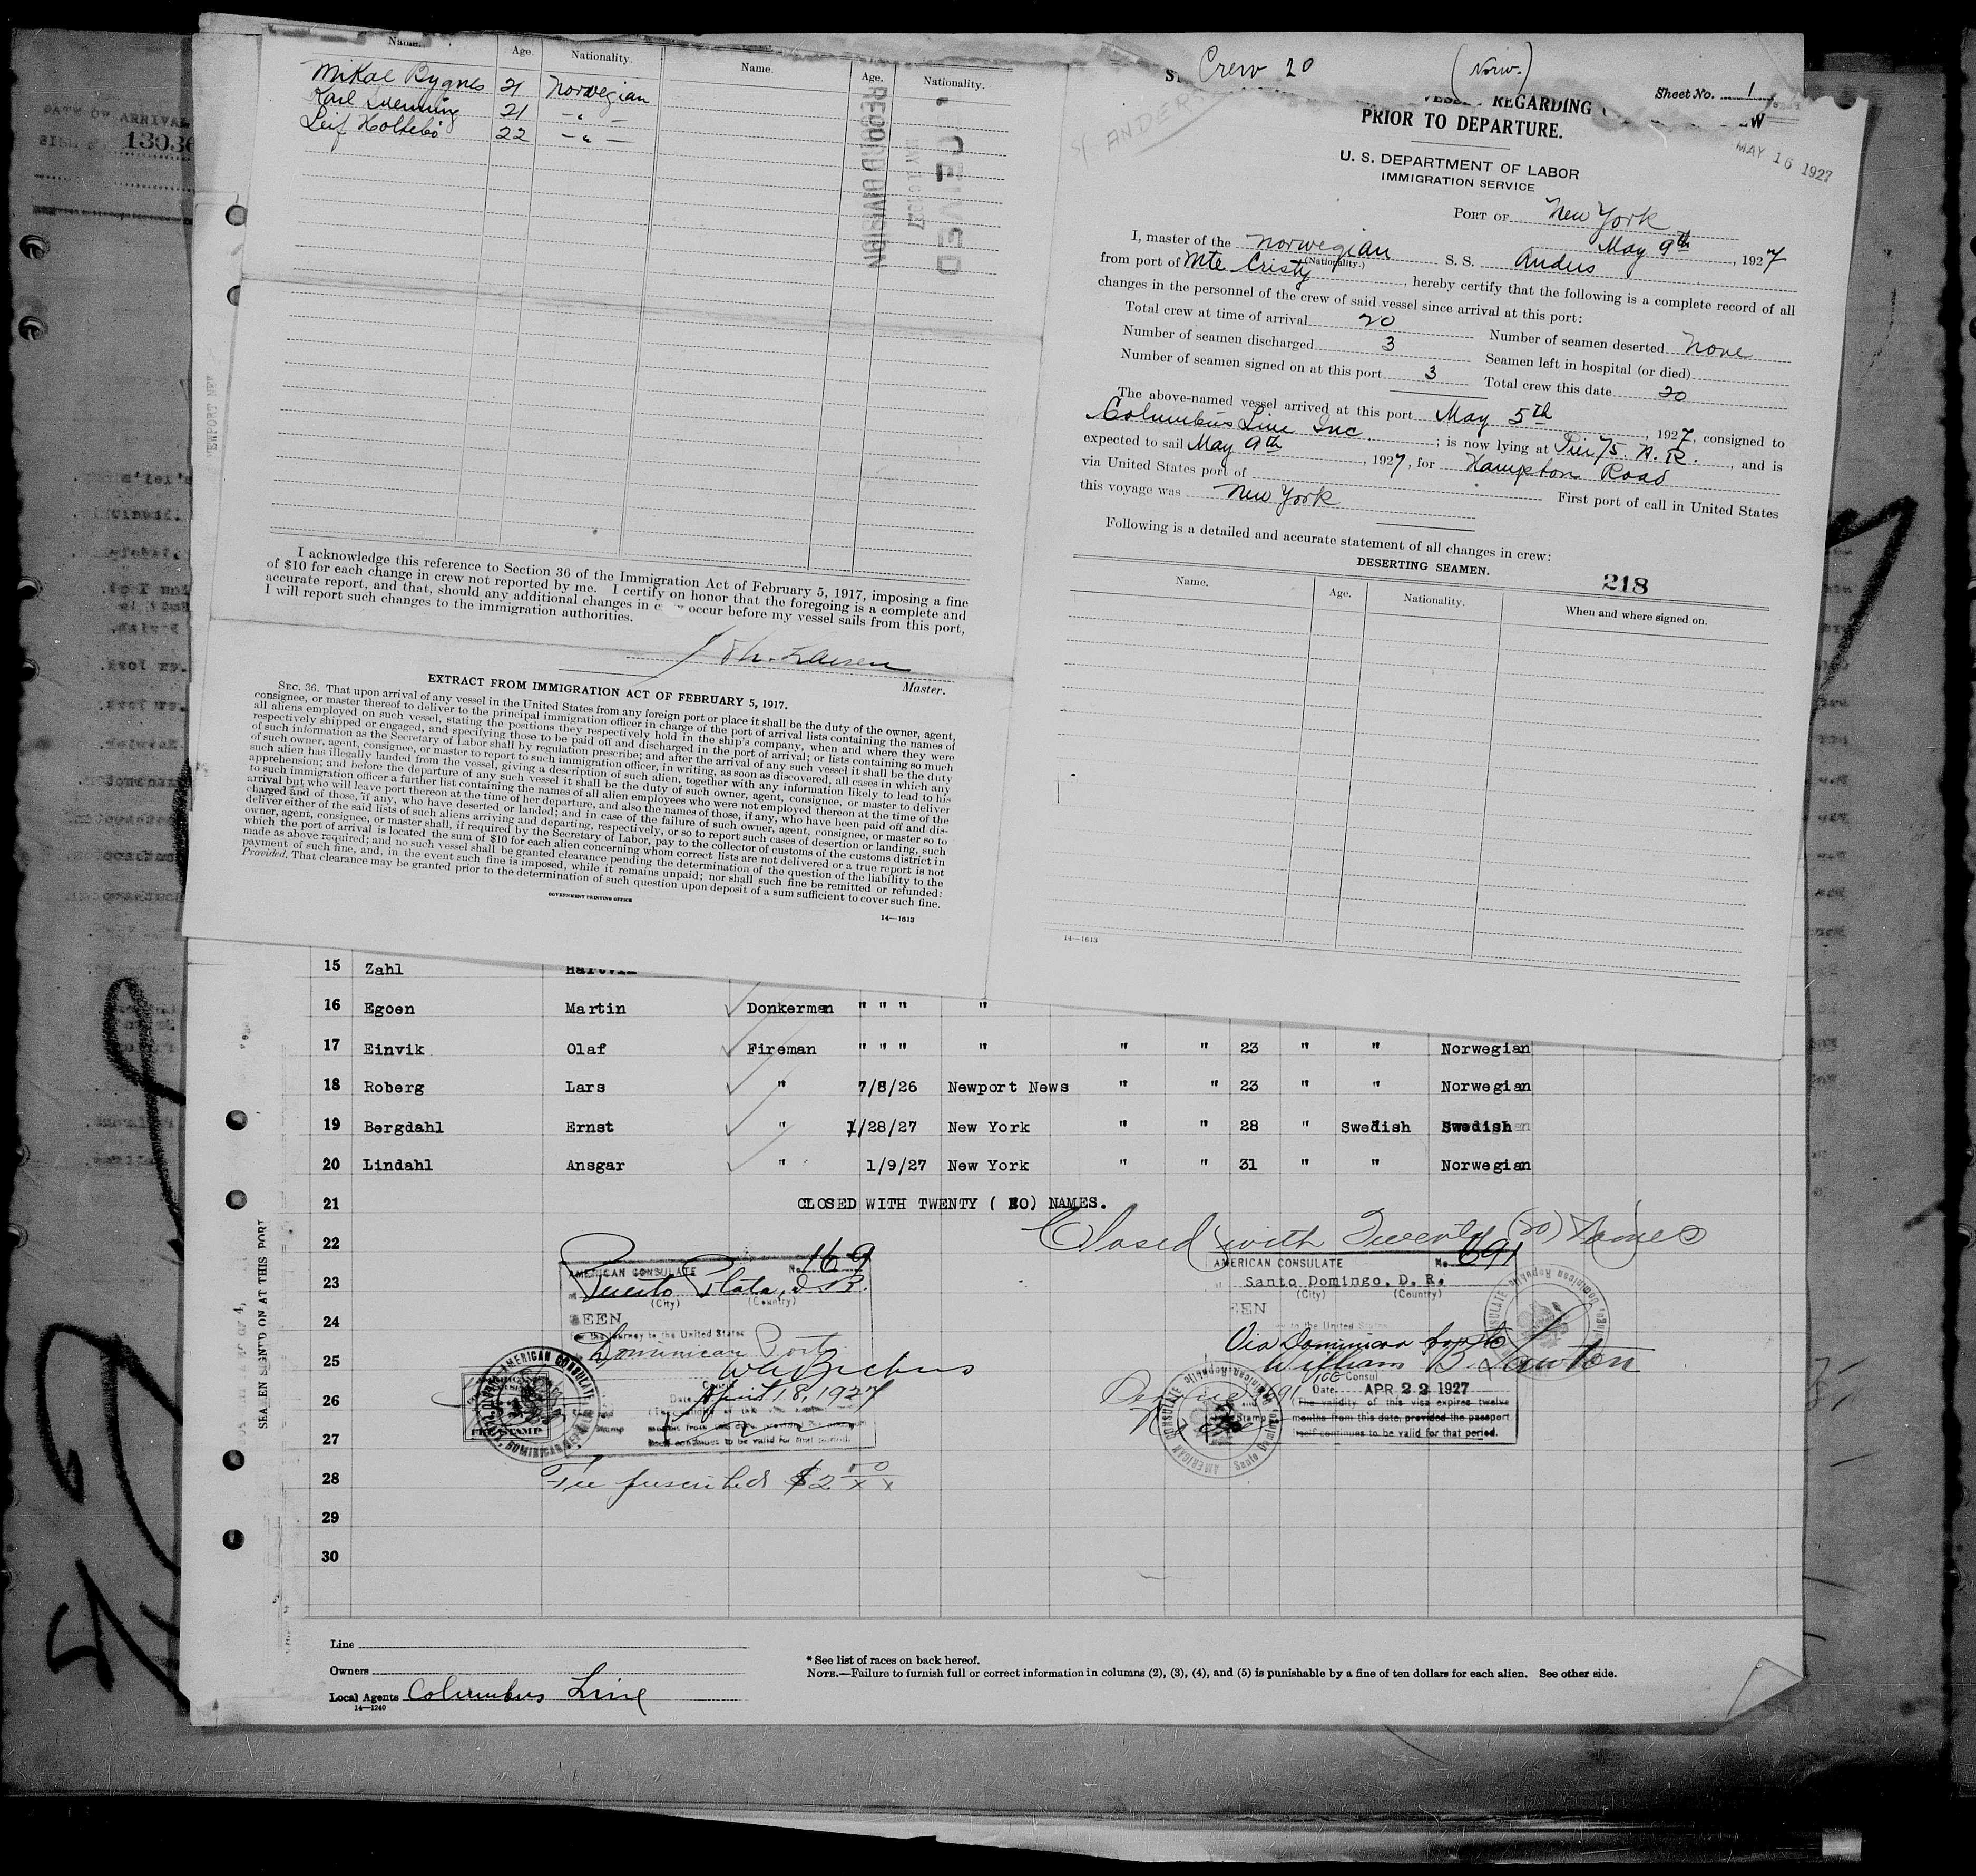 DATE OF ARRIVAL
Name. Age. Nationality. Name. Age. Nationality.
Mikal Bygnes 21 Norwegian
Karl 21 -"-
Leif Holtebö 22 -"-
RECORD DIVISION
Crew 20 (Norw.)
Sheet No. 1
REGARDING
PRIOR TO DEPARTURE.
MAY 16 1927
U. S. DEPARTMENT OF LABOR
IMMIGRATION SERVICE
PORT OF New York
May 9th, 1927
I, master of the Norwegian S. S. Anders
(Nationality.)
from port of Mte Cristy, hereby certify that the following is a complete record of all
changes in the personnel of the crew of said vessel since arrival at this port:
Total crew at time of arrival 20
Number of seamen discharged 3 Number of seamen deserted None
Number of seamen signed on at this port 3 Seamen left in hospital (or died)
Total crew this date 20
The above-named vessel arrived at this port May 5th, 1927, consigned to
Columbus Line Inc.; is now lying at Pier 75. N. R., and is
expected to sail May 9th, 1927, for Hampton Roads
via United States port of
First port of call in United States
this voyage was New York
Following is a detailed and accurate statement of all changes in crew:
DESERTING SEAMEN.
218
Name. Age. Nationality. When and where signed on.
14—1613
I acknowledge this reference to Section 36 of the Immigration Act of February 5, 1917, imposing a fine
of $10 for each change in crew not reported by me. I certify on honor that the foregoing is a complete and
accurate report, and that, should any additional changes in occur before my vessel sails from this port,
I will report such changes to the immigration authorities.
Larsen
Master.
EXTRACT FROM IMMIGRATION ACT OF FEBRUARY 5, 1917.
SEC. 36. That upon arrival of any vessel in the United States from any foreign port or place it shall be the duty of the owner, agent,
consignee, or master thereof to deliver to the principal immigration officer in charge of the port of arrival lists containing the names of
all aliens employed on such vessel, stating the positions they respectively hold in the ship's company, when and where they were
respectively shipped or engaged, and specifying those to be paid off and discharged in the port of arrival; or lists containing so much
of such information as the Secretary of Labor shall by regulation prescribe; and after the arrival of any such vessel it shall be the duty
of such owner, agent, consignee, or master to report to such immigration officer, in writing, as soon as discovered, all cases in which any
such alien has illegally landed from the vessel, giving a description of such alien, together with any information likely to lead to his
apprehension; and before the departure of any such vessel it shall be the duty of such owner, agent, consignee, or master to deliver
to such immigration officer a further list containing the names of all alien employees who were not employed thereon at the time of the
arrival but who will leave port thereon at the time of her departure, and also the names of those, if any, who have been paid off and dis-
charged and of those, if any, who have deserted or landed; and in case of the failure of such owner, agent, consignee, or master so to
deliver either of the said lists of such aliens arriving and departing, respectively, or so to report such cases of desertion or landing, such
owner, agent, consignee, or master shall, if required by the Secretary of Labor, pay to the collector of customs of the customs district in
which the port of arrival is located the sum of $10 for each alien concerning whom correct lists are not delivered or a true report is not
made as above required; and no such vessel shall be granted clearance pending the determination of the question of the liability to the
payment of such fine, and, in the event such fine is imposed, while it remains unpaid; nor shall such fine be remitted or refunded:
Provided, That clearance may be granted prior to the determination of such question upon deposit of a sum sufficient to cover such fine.
GOVERNMENT PRINTING OFFICE
14—1613
15 Zahl
16 Egoen Martin Donkerman " " " "
17 Einvik Olaf Fireman " " " " " " 23 " " Norwegian
18 Roberg Lars " 7/8/26 Newport News " " 23 " " Norwegian
19 Bergdahl Ernst " 1/28/27 New York " " 28 " Swedish Swedish
20 Lindahl Ansgar " 1/9/27 New York " " 31 " " Norwegian
21 CLOSED WITH TWENTY (20) NAMES.
Closed with Twenty (20) Names
22
23
24
25
26
27
28
29
30
AMERICAN CONSULATE No. 169
Puerto Plata, D. R.
(City) (Country)
SEEN
For the journey to the United States
Dominican Ports
Date April 18, 1927
FEE STAMP
Fee prescribed $2.50
AMERICAN CONSULATE No. 691
Santo Domingo, D. R.
(City) (Country)
SEEN
to the United States
Via Dominican ports
William B. Lawton
Vice Consul
Date APR 22 1927
(The validity of this visa expires twelve
months from this date, provided the passport
itself continues to be valid for that period.
SEAMEN SIGNED ON AT THIS PORT
Line
Owners
Local Agents Columbus Line
14—1240
* See list of races on back hereof.
NOTE.—Failure to furnish full or correct information in columns (2), (3), (4), and (5) is punishable by a fine of ten dollars for each alien. See other side.